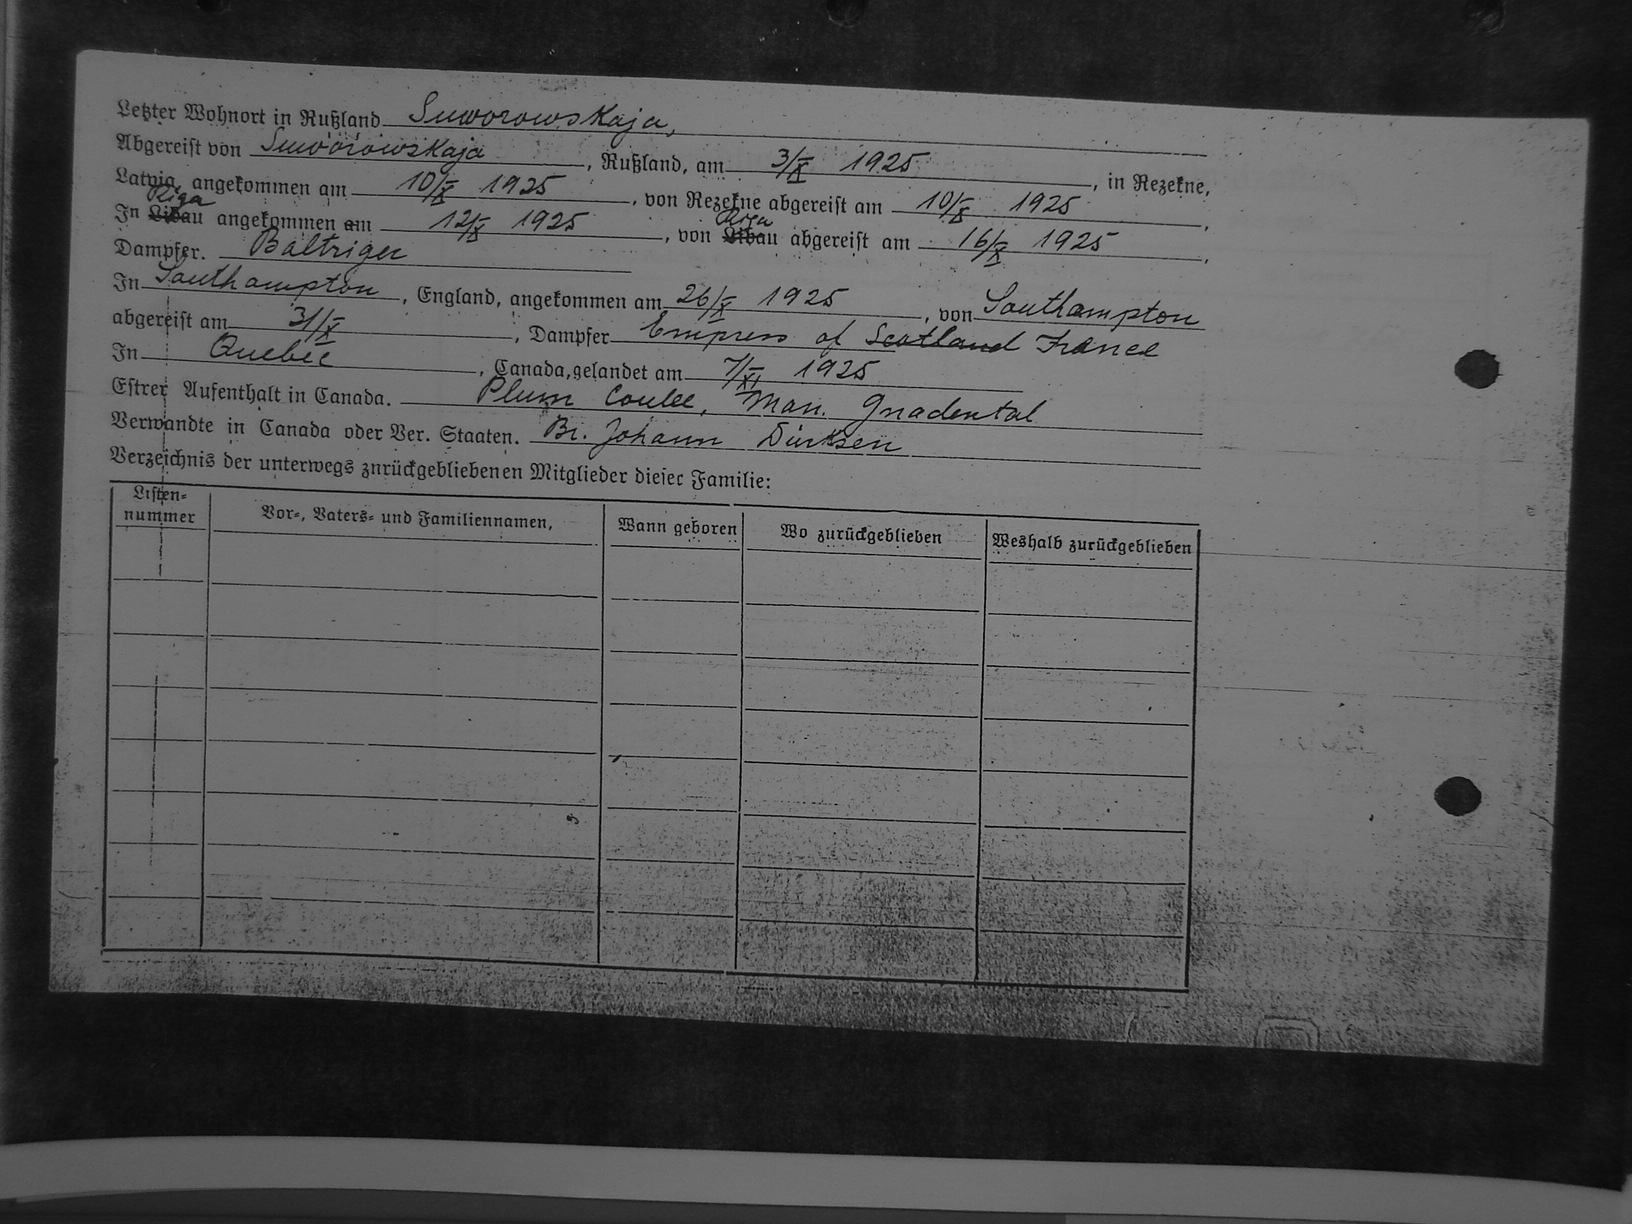 Letzter Wohnort in Rußland Suworowskaja,
Abgereist von Suworowskaja, Rußland, am 3/X 1925, in Rezekne,
Latvia, angekommen am 10/X 1925, von Rezekne abgereist am 10/X 1925,
In Libau Riga angekommen am 12/X 1925, von Libau Riga abgereist am 16/X 1925,
Dampfer. Baltriger
In Southampton, England, angekommen am 26/X 1925, von Southampton
abgereist am 31/X, Dampfer Empress of Scotland France
In Quebec, Canada, gelandet am 7/XI 1925
Estrer Aufenthalt in Canada. Plum Coulee, Man. Gnadental
Verwandte in Canada oder Ver. Staaten. Br. Johann Dürksen
Verzeichnis der unterwegs znrückgebliebenen Mitglieder diesec Familie:
Listen-
nummer
Vor-, Vaters- und Familiennamen,
Wann geboren
Wo zurückgeblieben
Weshalb zurückgeblieben